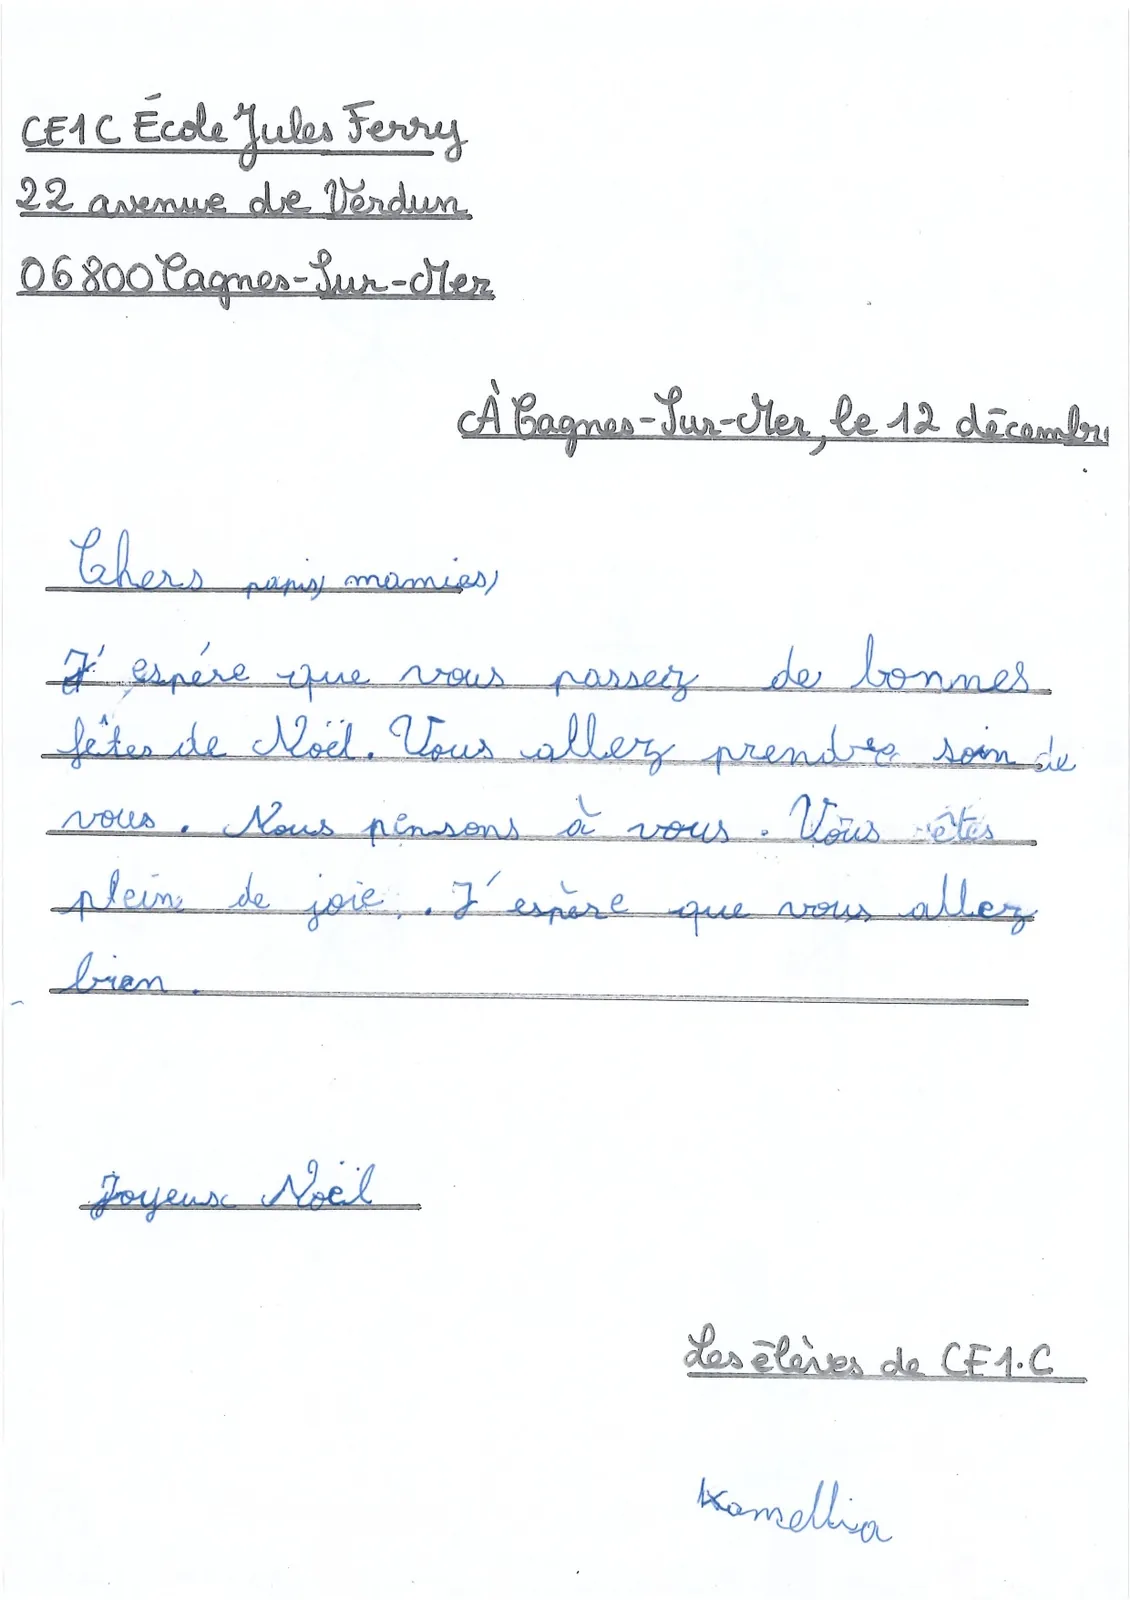 CE1C École Jules Ferry
22 avenue de Verdun
06800 Cagnes-Sur-Mer
À Cagnes-Sur-Mer, le 12 décembr
Chers papis, mamies,
J'espére que vous passez de bonnes
fêtes de Noël. Vous allez prendre soin de
vous. Nous pensons à vous. Vous êtes
plein de joie. J'espère que vous allez
bien.
Joyeux Noël
Les élèves de CE1.C
Kamellia